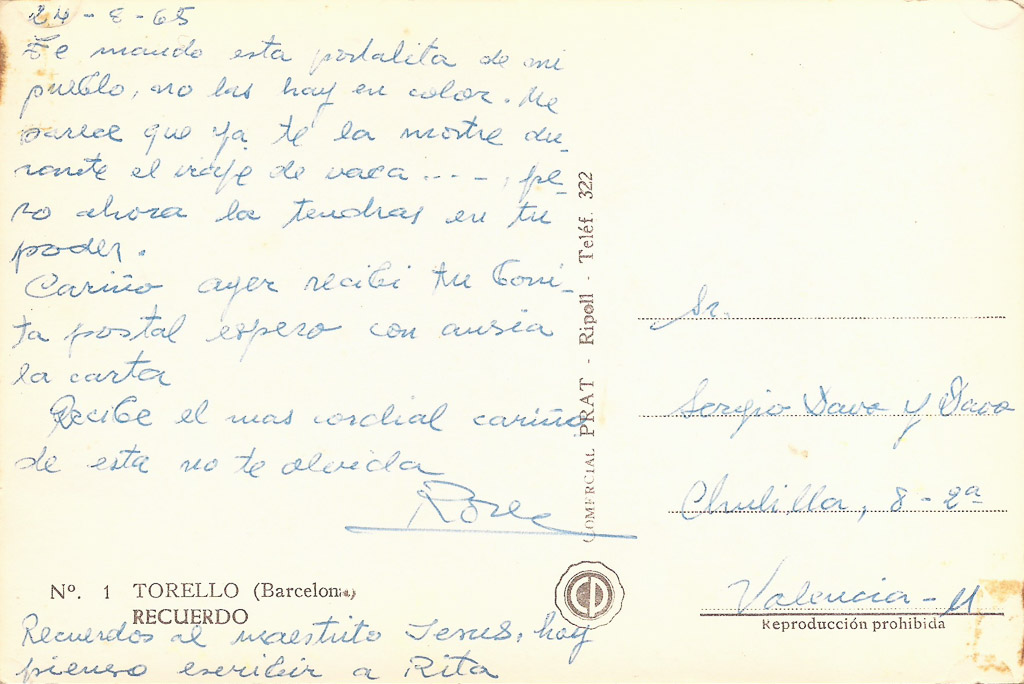 24 - 8 - 65
Te mando esta postalita de mi
pueblo, no las hay en color. Me
parece que ya te la mostre du-
rante el viaje de vaca ----, pe-
ro ahora la tendras en tu
poder.
Cariño ayer recibi tu boni-
ta postal espero con ansia
la carta
Recibe el mas cordial cariño
de esta no te olvida
Nº. 1 TORELLO (Barcelona)
RECUERDO
Recuerdos al maestrito Jesus, hoy
pienso escribir a Rita
COMERCIAL PRAT - Ripoll - Teléf. 322
CP
Sr.
Sergio Dava y Dava
Chulilla, 8 - 2ª
Valencia - 11
Reproducción prohibida